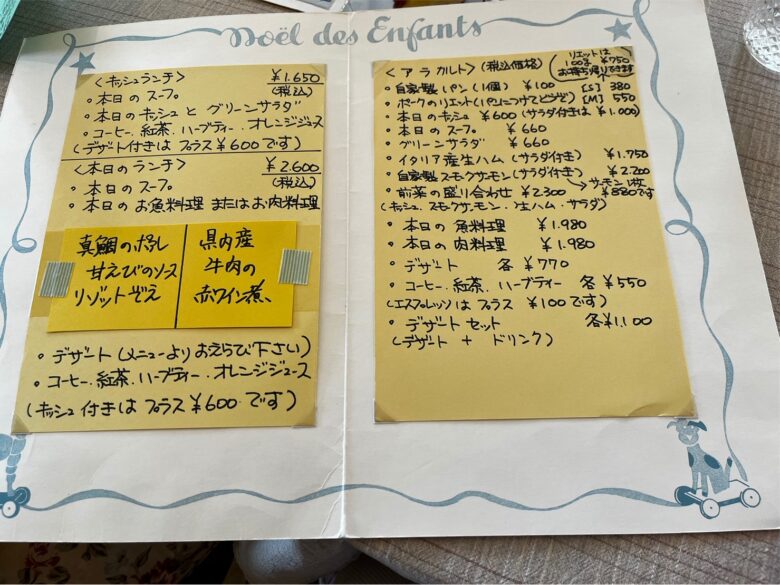 Noël des Enfants
〈キッシュランチ〉 ¥1.650
(税込)
・本日のスープ
・本日のキッシュとグリーンサラダ
・コーヒー.紅茶.ハーブティー.オレンジジュース
(デザート付きはプラス¥600です)
〈本日のランチ〉 ¥2.600
(税込)
・本日のスープ
・本日のお魚料理 またはお肉料理
真鯛のポワレ
甘えびのソース
リゾットぞえ
県内産
牛肉の
赤ワイン煮
・デザート(メニューよりおえらび下さい)
・コーヒー.紅茶.ハーブティー.オレンジジュース
(キッシュ付きはプラス¥600です)
〈アラカルト〉(税込価格)
リエットは
100g ¥750
お持ち帰りできます
・自家製パン(1個) ¥100 [S] 380
・ポークのリエット(パンにつけてどうぞ) [M] 550
・本日のキッシュ ¥600(サラダ付きは¥1.000)
・本日のスープ ¥660
・グリーンサラダ ¥660
・イタリア産生ハム(サラダ付き) ¥1.750
・自家製スモークサーモン(サラダ付き) ¥2.200
→サーモン1枚
¥880です
・前菜の盛り合わせ ¥2.300
(キッシュ.スモークサーモン.生ハム.サラダ)
・本日の魚料理 ¥1.980
・本日の肉料理 ¥1.980
・デザート 各¥770
・コーヒー.紅茶.ハーブティー 各¥550
(エスプレッソはプラス ¥100です)
・デザートセット 各¥1.100
(デザート + ドリンク)